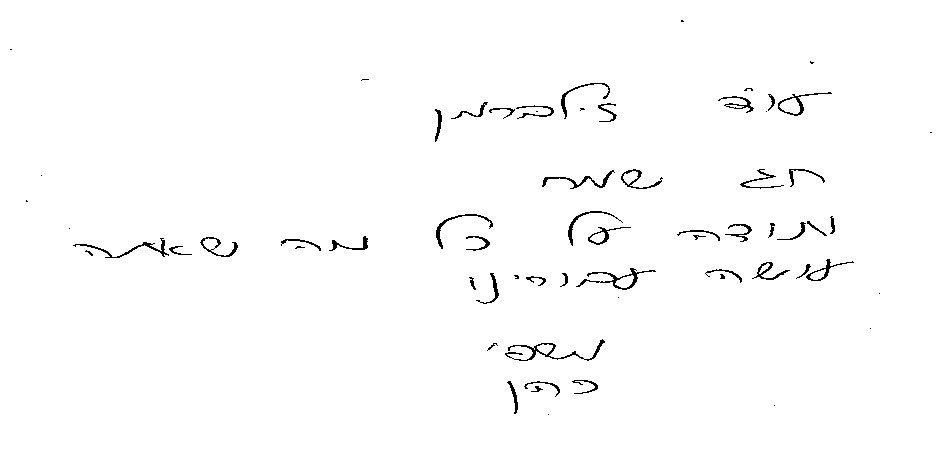 עוד זילברמן
חג שמח
ותודה על כל מה שאתה
עושה עבורינו
משפ'
כהן